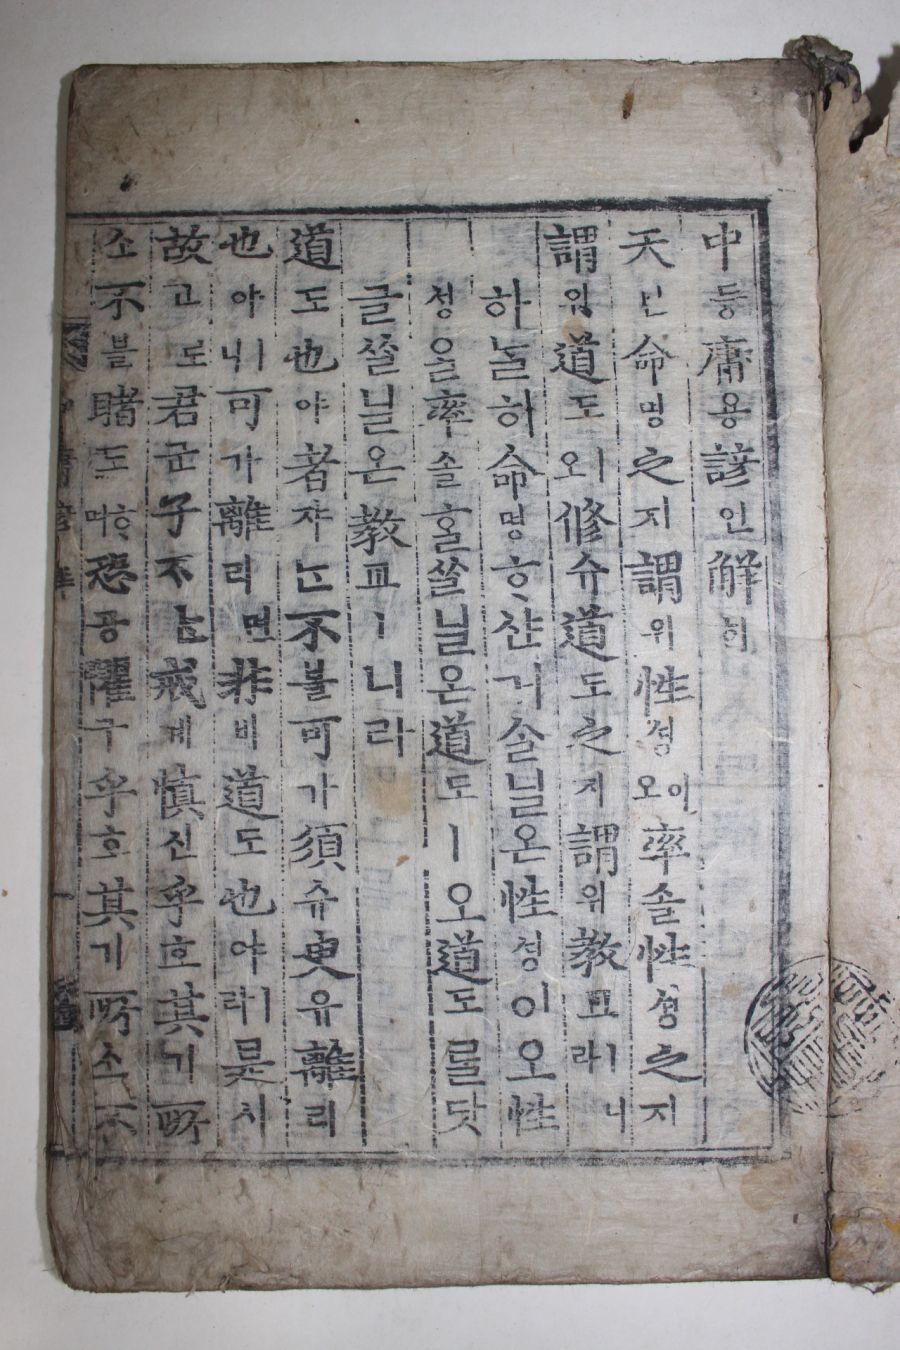 中듕庸용諺언解ᄒᆡ
天텬命명之지謂위性셩이오率솔性셩之지
謂위道도ㅣ오修슈道도之지謂위敎교ㅣ라니
하ᄂᆞᆯ하命명ᄒᆞ샨거ᄉᆞᆯ닐온性셩이오性
셩을率솔홀쏠닐온道도ㅣ오道도를닷
글쏠닐온敎교ㅣ니라
道도也야者쟈ᄂᆞᆫ不블可가須슈臾유離리
也야ㅣ니可가離리면非비道도也야ㅣ라是시
故고로君군子ᄌᆞ不戒계愼신乎호其기所
소不블睹도ᄒᆞ며恐공懼구乎호其기所소不